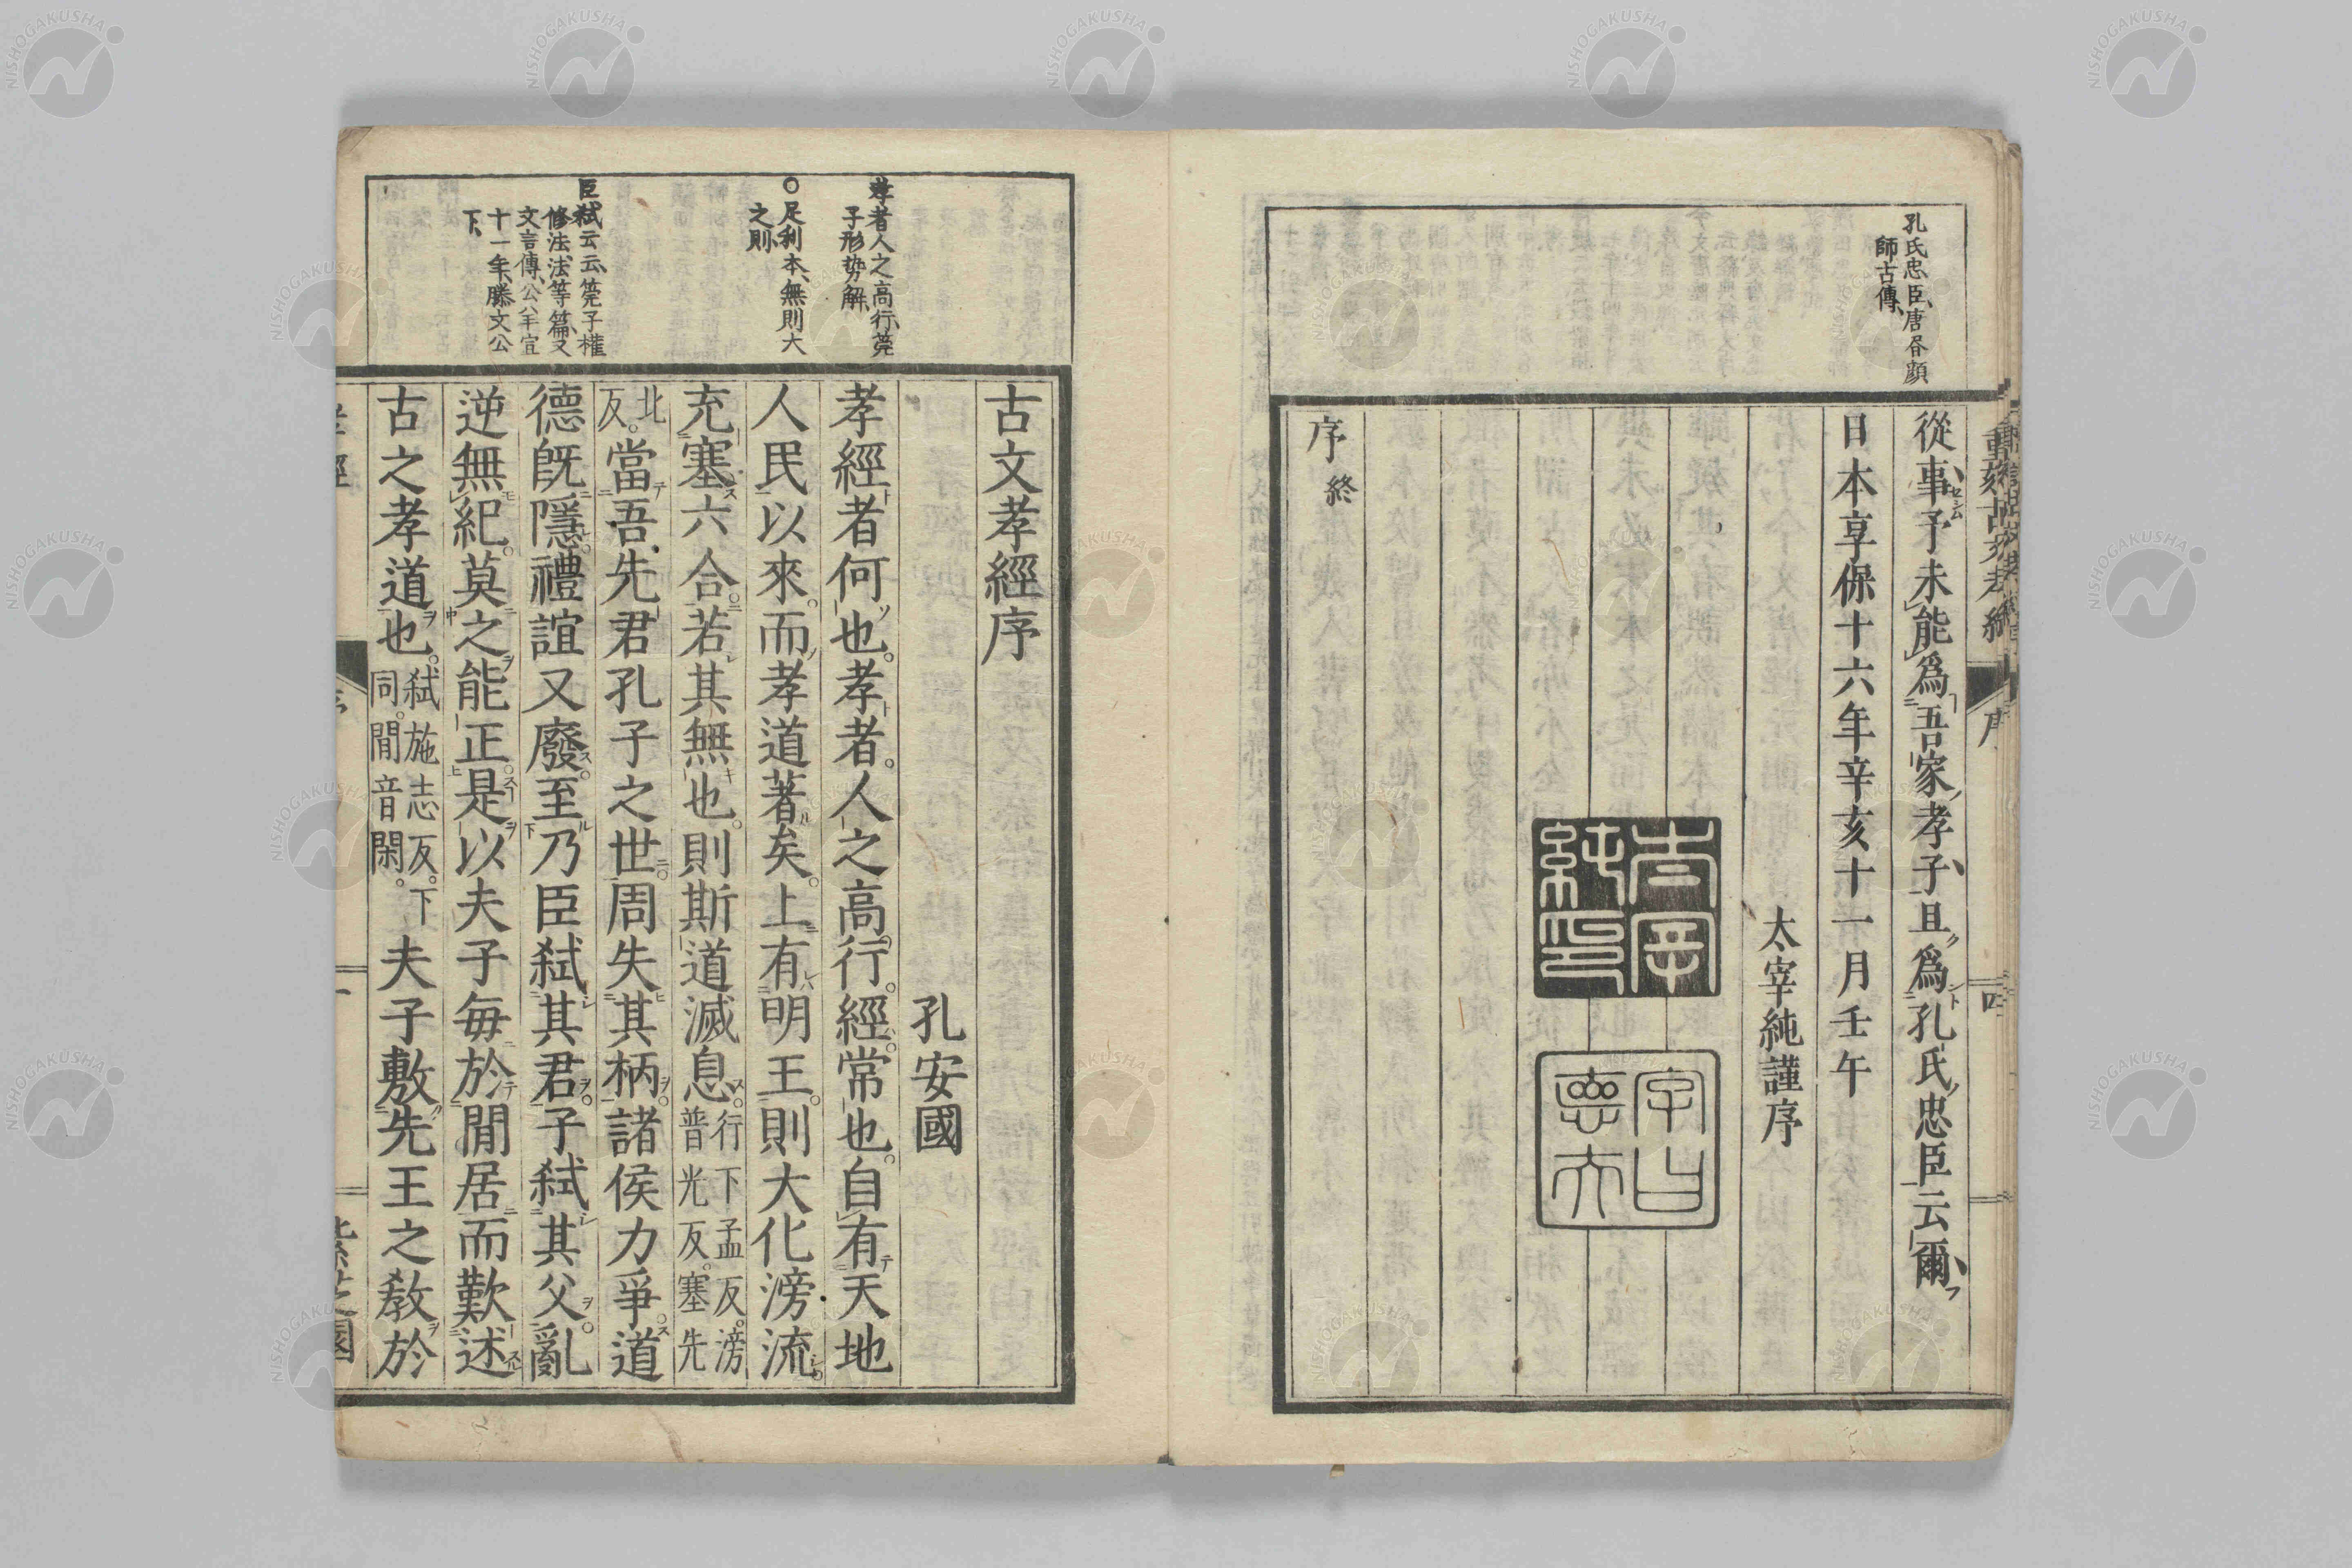 孔氏忠臣、唐昝顔
師古傳、
從事予未能爲吾家孝子且爲孔氏忠臣云爾
日本享保十六年辛亥十一月壬午
太宰純謹序
太宰
純印
字曰
德夫
序終
重刻古文孝經
序
四
孝者人之高行、莞
子形势解、
○足利本、無則大
之則、
臣弑云云、筦子權
修法、法等篇又
文言傳、公羊宣
十一年、滕文公
下、
古文孝經序
孔安國
孝經者何也。孝者。人之高行。經。常也。自有天地
人民以來。而孝道著矣。上有明王。則大化滂流。
充塞六合。若其無也。則斯道滅息。行下孟反。滂普光反。塞先
北反。當吾先君孔子之世。周失其柄。諸侯力爭。道
德既隱。禮誼又廢。至乃臣弑其君。子弑其父。亂
逆無紀。莫之能正。是以夫子每於閒居而歎述
古之孝道也。弑施志反。下同。閒音閑。夫子敷先王之教於
孝經
序
一
紫芝園
NISHOGAKUSHA
NISHOGAKUSHA
NISHOGAKUSHA
NISHOGAKUSHA
NISHOGAKUSHA
NISHOGAKUSHA
NISHOGAKUSHA
NISHOGAKUSHA
NISHOGAKUSHA
NISHOGAKUSHA
NISHOGAKUSHA
NISHOGAKUSHA
NISHOGAKUSHA
NISHOGAKUSHA